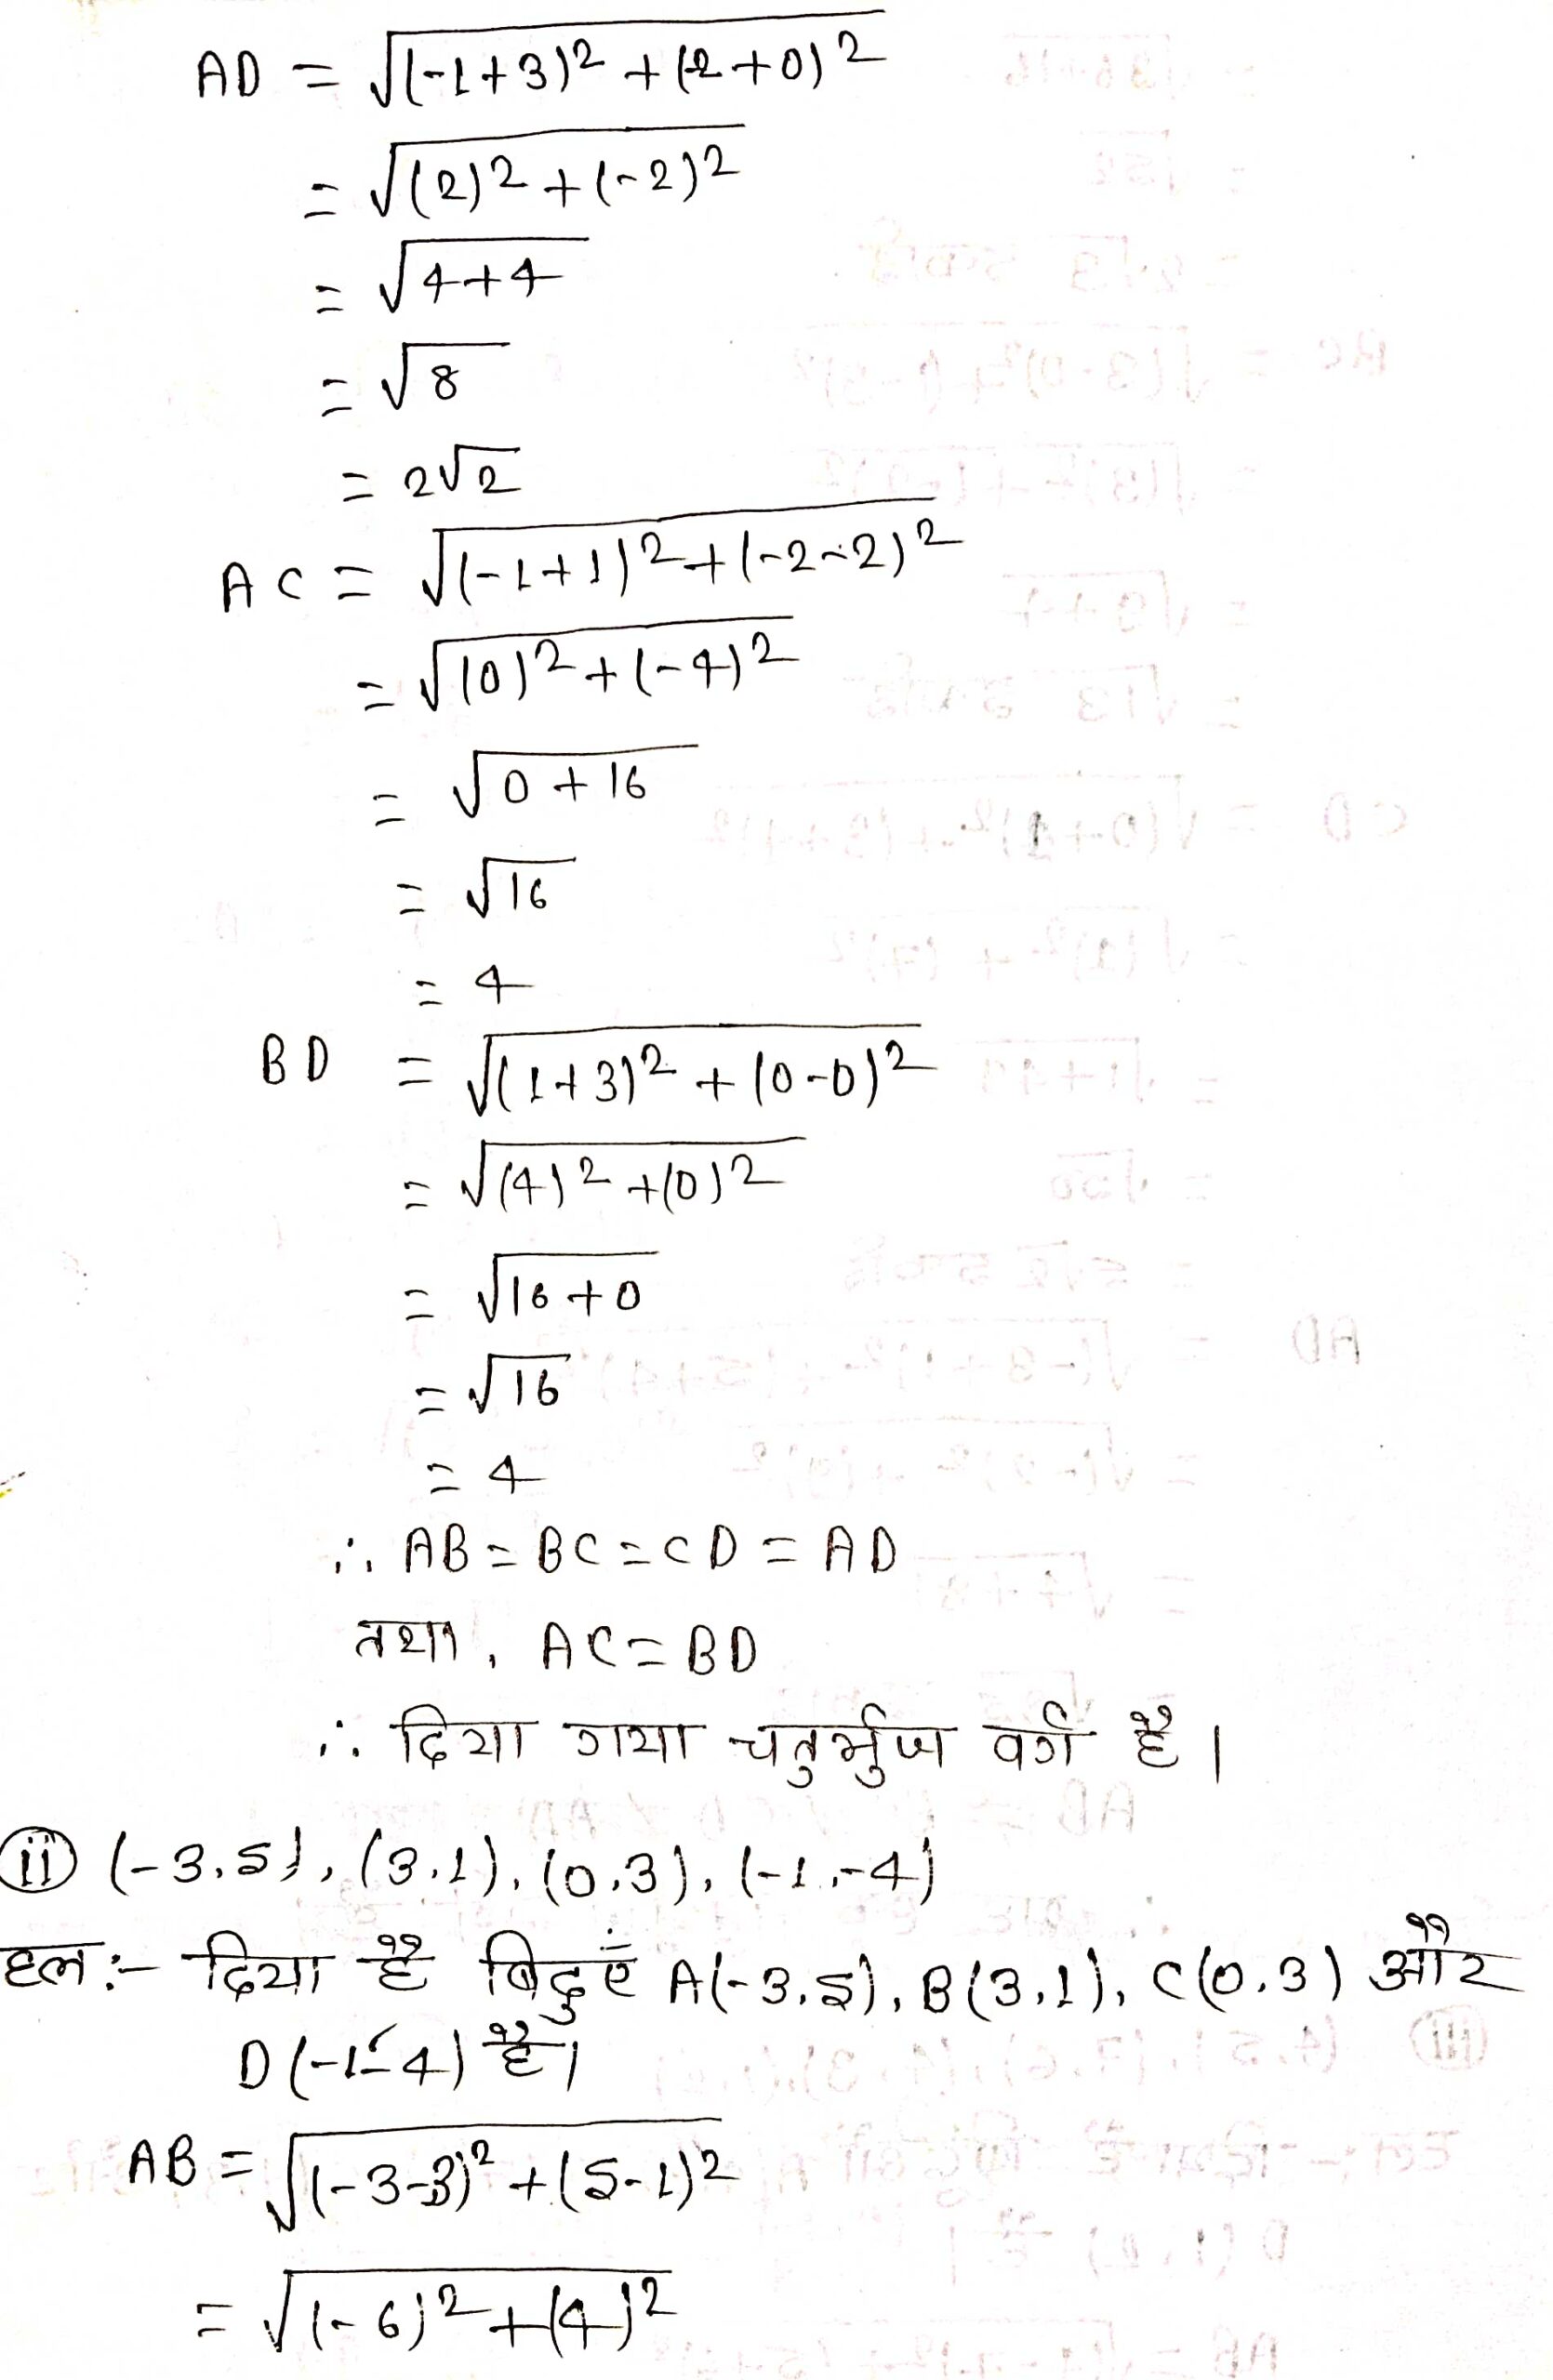 AD = √(-1+3)² + (-2+0)²
= √(2)² + (-2)²
= √4+4
= √8
= 2√2
AC = √(-1+1)² + (-2-2)²
= √(0)² + (-4)²
= √0+16
= √16
= 4
BD = √(1+3)² + (0-0)²
= √(4)² + (0)²
= √16+0
= √16
= 4
∴ AB = BC = CD = AD
तथा, AC = BD
∴ दिया गया चतुर्भुज वर्ग है।
(ii) (-3,5), (3,1), (0,3), (-1,-4)
हल:- दिया है बिंदुएं A(-3,5), B(3,1), C(0,3) और
D(-1,-4) है।
AB = √(-3-3)² + (5-1)²
= √(-6)² + (4)²